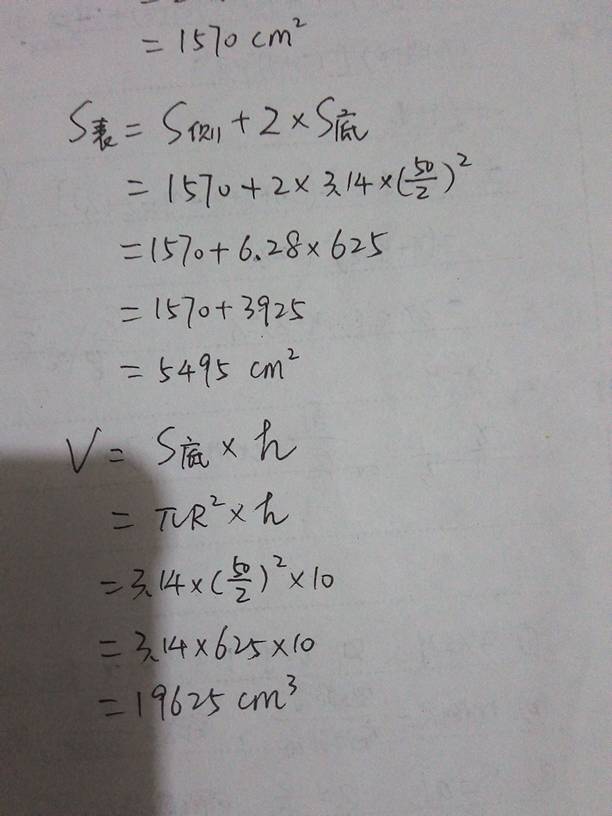 = 1570 cm²
S表 = S侧 + 2 × S底
= 1570 + 2 × 3.14 × (50/2)²
= 1570 + 6.28 × 625
= 1570 + 3925
= 5495 cm²
V = S底 × h
= πR² × h
= 3.14 × (50/2)² × 10
= 3.14 × 625 × 10
= 19625 cm³